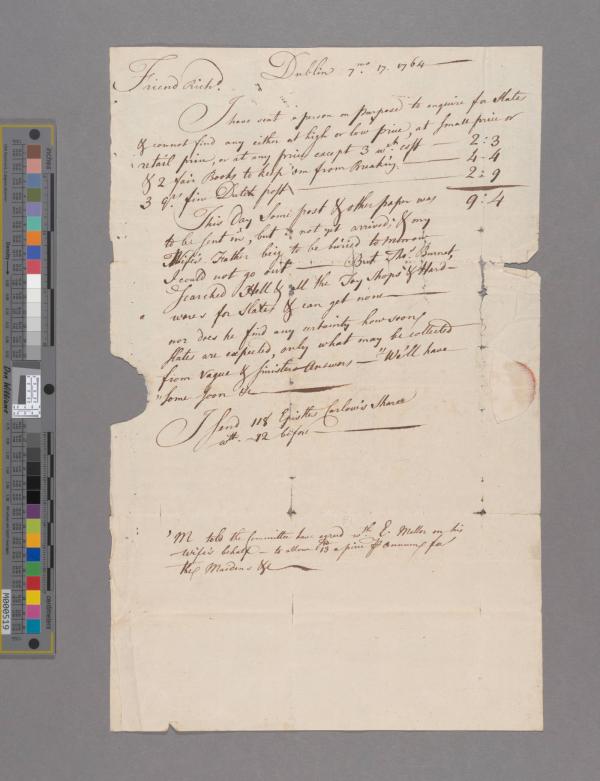 Dublin 7mo 17. 1764
Friend Richd.
I have sent a person on purpose to enquire for Slates
& cannot find any either at high or low price, at Small price or
retail price, or at any price except 3 wch. cost 2:3
& 2 fair Books to keep 'em from Breaking 4-4
3 qrs. fine Dutch post 2:9
9:4
This day Some post & other paper was
to be sent in, but is not yet arrived, & my
Wife's Father being to be buried to morrow
I could not go out But Thos. Burnet
Searched Hell & all the Toy Shops & Hard-
wares for Slates & can get none
nor does he find any certainty how soon
Slates are expected, only what may be collected
from Vague & Sinister Answers - "We'll have
"some soon &c
I send 118 Epistles Carlow's Share
wth. 12 before
'M told the Committee have agreed wth. E. Mellor on his
Wife's behalf - to allow 13 a piece annum for
the Maidens &c
inches
centimetres
Don Williams
M000519